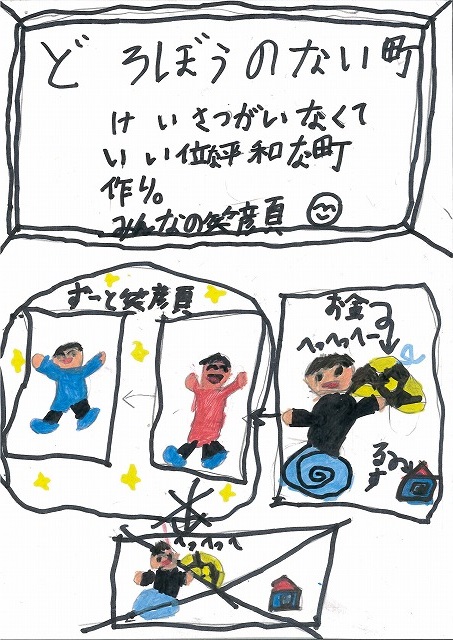 どろぼうのない町
けいさつがいなくて
いい位な平和な町
作り。
みんなの笑顔
ずーと笑顔
お金
へっへっへー
るす
へっへっへ